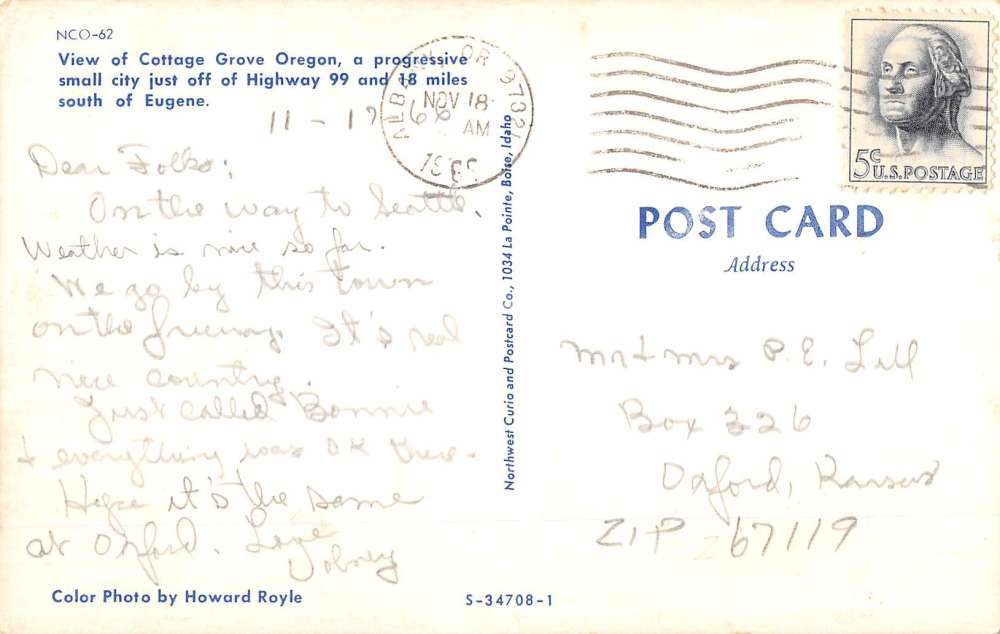 NCO-62
View of Cottage Grove Oregon, a progressive
small city just off of Highway 99 and 18 miles
south of Eugene.
11 - 17 66
Dear Folks;
On the way to Seattle.
Weather is nice so far.
We go by this town
on the freeway. It's real
nice country.
Just called Bonnie
+ everything was OK there.
Hope it's the same
at Oxford. Love
Volney
Color Photo by Howard Royle
S-34708-1
Northwest Curio and Postcard Co., 1034 La Pointe, Boise, Idaho
ALBANY OR 97321
NOV 18
AM
5c
U.S.POSTAGE
POST CARD
Address
Mr + Mrs P.E. Lill
Box 326
Oxford, Kansas
ZIP 67119